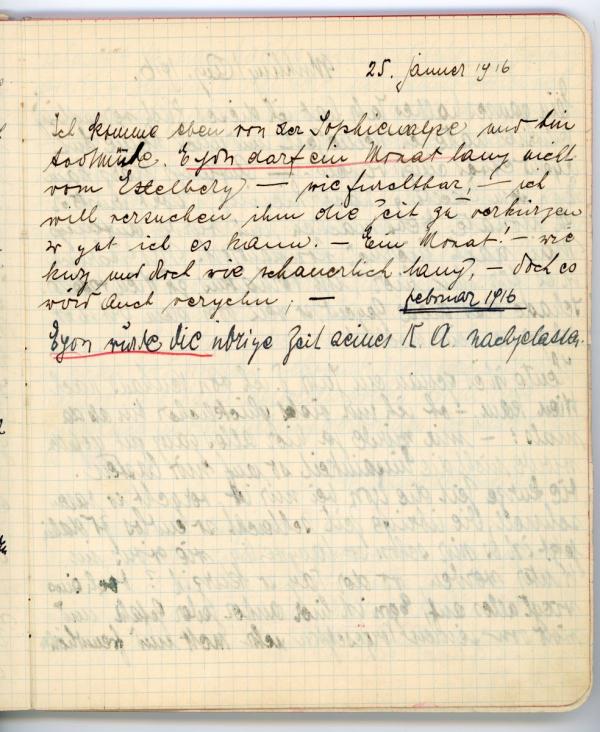 25. Jänner 1916
Ich komme eben von der Sophienalpe und bin
todmüde. Egon darf ein Monat lang nicht
vom Exelberg — wie furchtbar, — ich
will versuchen ihm die Zeit zu verkürzen
so gut ich es kann. — Ein Monat! — wie
kurz und doch wie schauerlich lang, — doch es
wird auch vergehn, —
Februar 1916
Egon wurde die übrige Zeit seines K A nachgelassen.